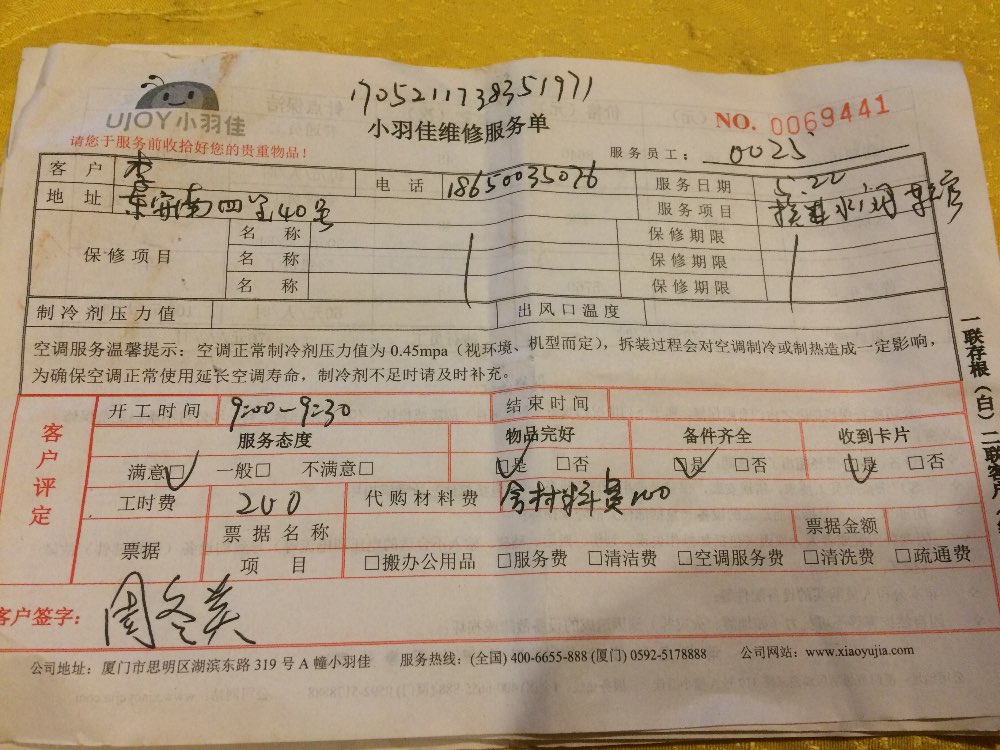 1705211738351971
UJOY小羽佳
小羽佳维修服务单
NO. 0069441
请您于服务前收拾好您的贵重物品！
服务员工： 0025
客 户 李 电 话 18650035026 服务日期 5.22
地 址 东安南四里40号 服务项目
保修项目 名 称 保修期限
名 称 保修期限
名 称 保修期限
制冷剂压力值 出风口温度
空调服务温馨提示：空调正常制冷剂压力值为 0.45mpa（视环境、机型而定），拆装过程会对空调制冷或制热造成一定影响，
为确保空调正常使用延长空调寿命，制冷剂不足时请及时补充。
客户评定
开工时间 9:00-9:30 结束时间
服务态度 物品完好 备件齐全 收到卡片
满意□ 一般□ 不满意□ □是 □否 □是 □否 □是 □否
工时费 200 代购材料费 含材料费
票据 票据名称 票据金额
项 目 □搬办公用品 □服务费 □清洁费 □空调服务费 □清洗费 □疏通费
客户签字：
公司地址：厦门市思明区湖滨东路 319 号 A 幢小羽佳 服务热线：(全国) 400-6655-888 (厦门) 0592-5178888 公司网站：www.xiaoyujia.com
一联存根（白）二联客户